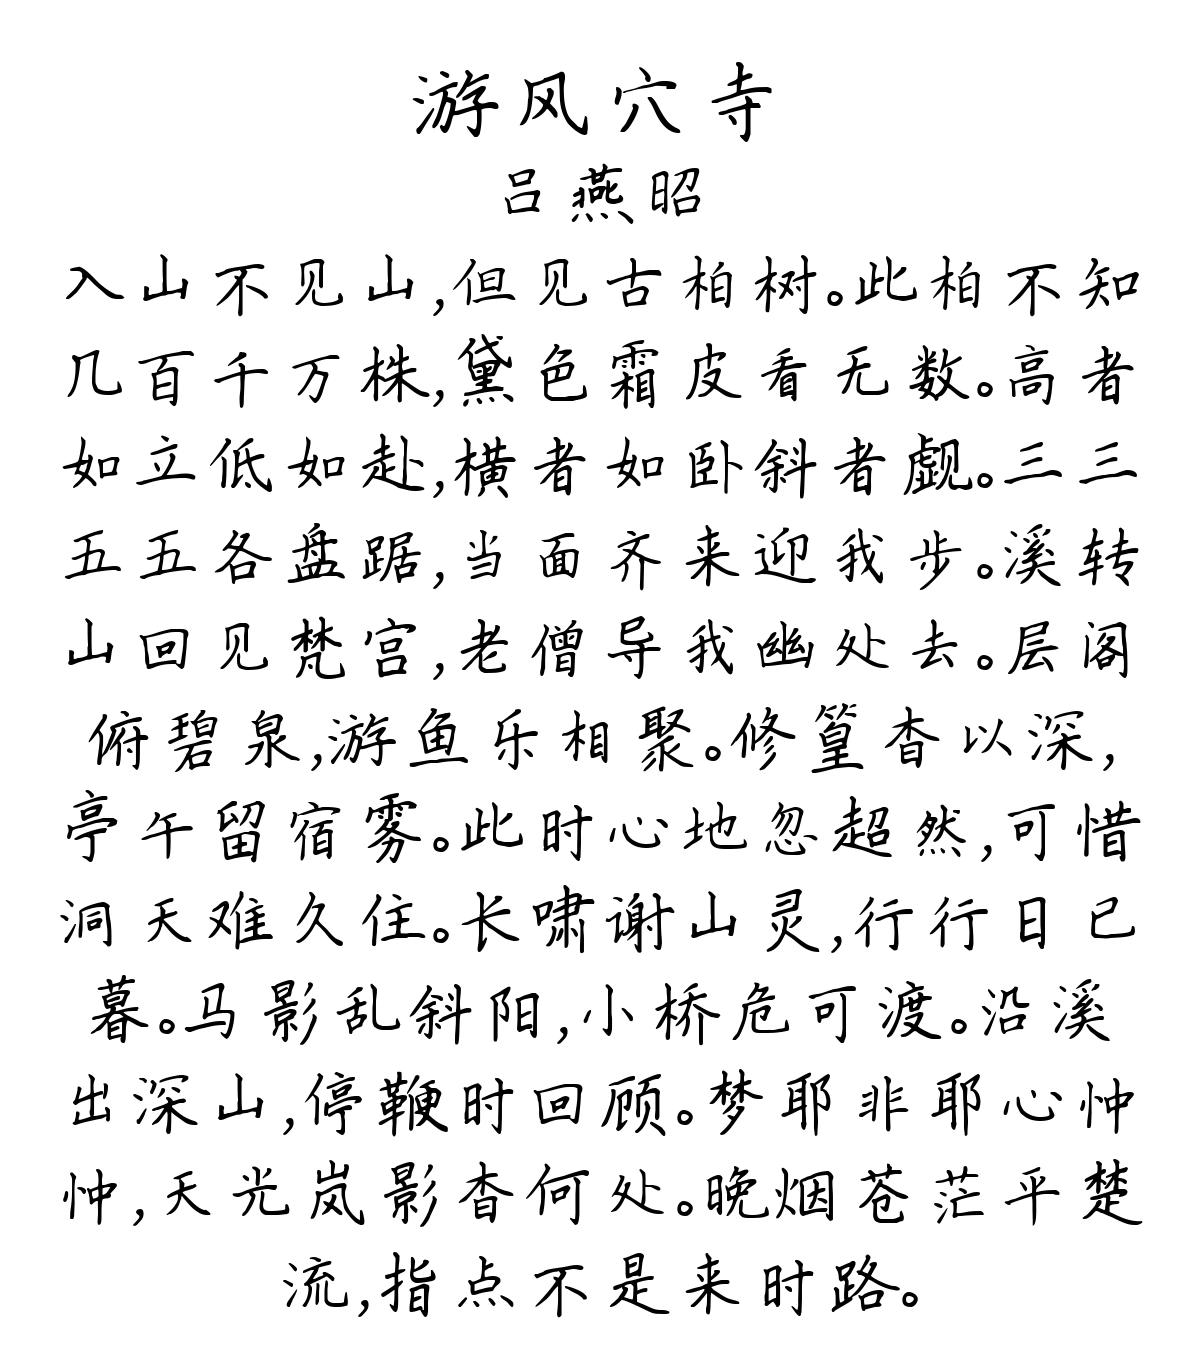 游风穴寺
吕燕昭
入山不见山,但见古柏树。此柏不知
几百千万株,黛色霜皮看无数。高者
如立低如赴,横者如卧斜者觑。三三
五五各盘踞,当面齐来迎我步。溪转
山回见梵宫,老僧导我幽处去。层阁
俯碧泉,游鱼乐相聚。修篁杳以深,
亭午留宿雾。此时心地忽超然,可惜
洞天难久住。长啸谢山灵,行行日已
暮。马影乱斜阳,小桥危可渡。沿溪
出深山,停鞭时回顾。梦耶非耶心忡
忡,天光岚影杳何处。晚烟苍茫平楚
流,指点不是来时路。